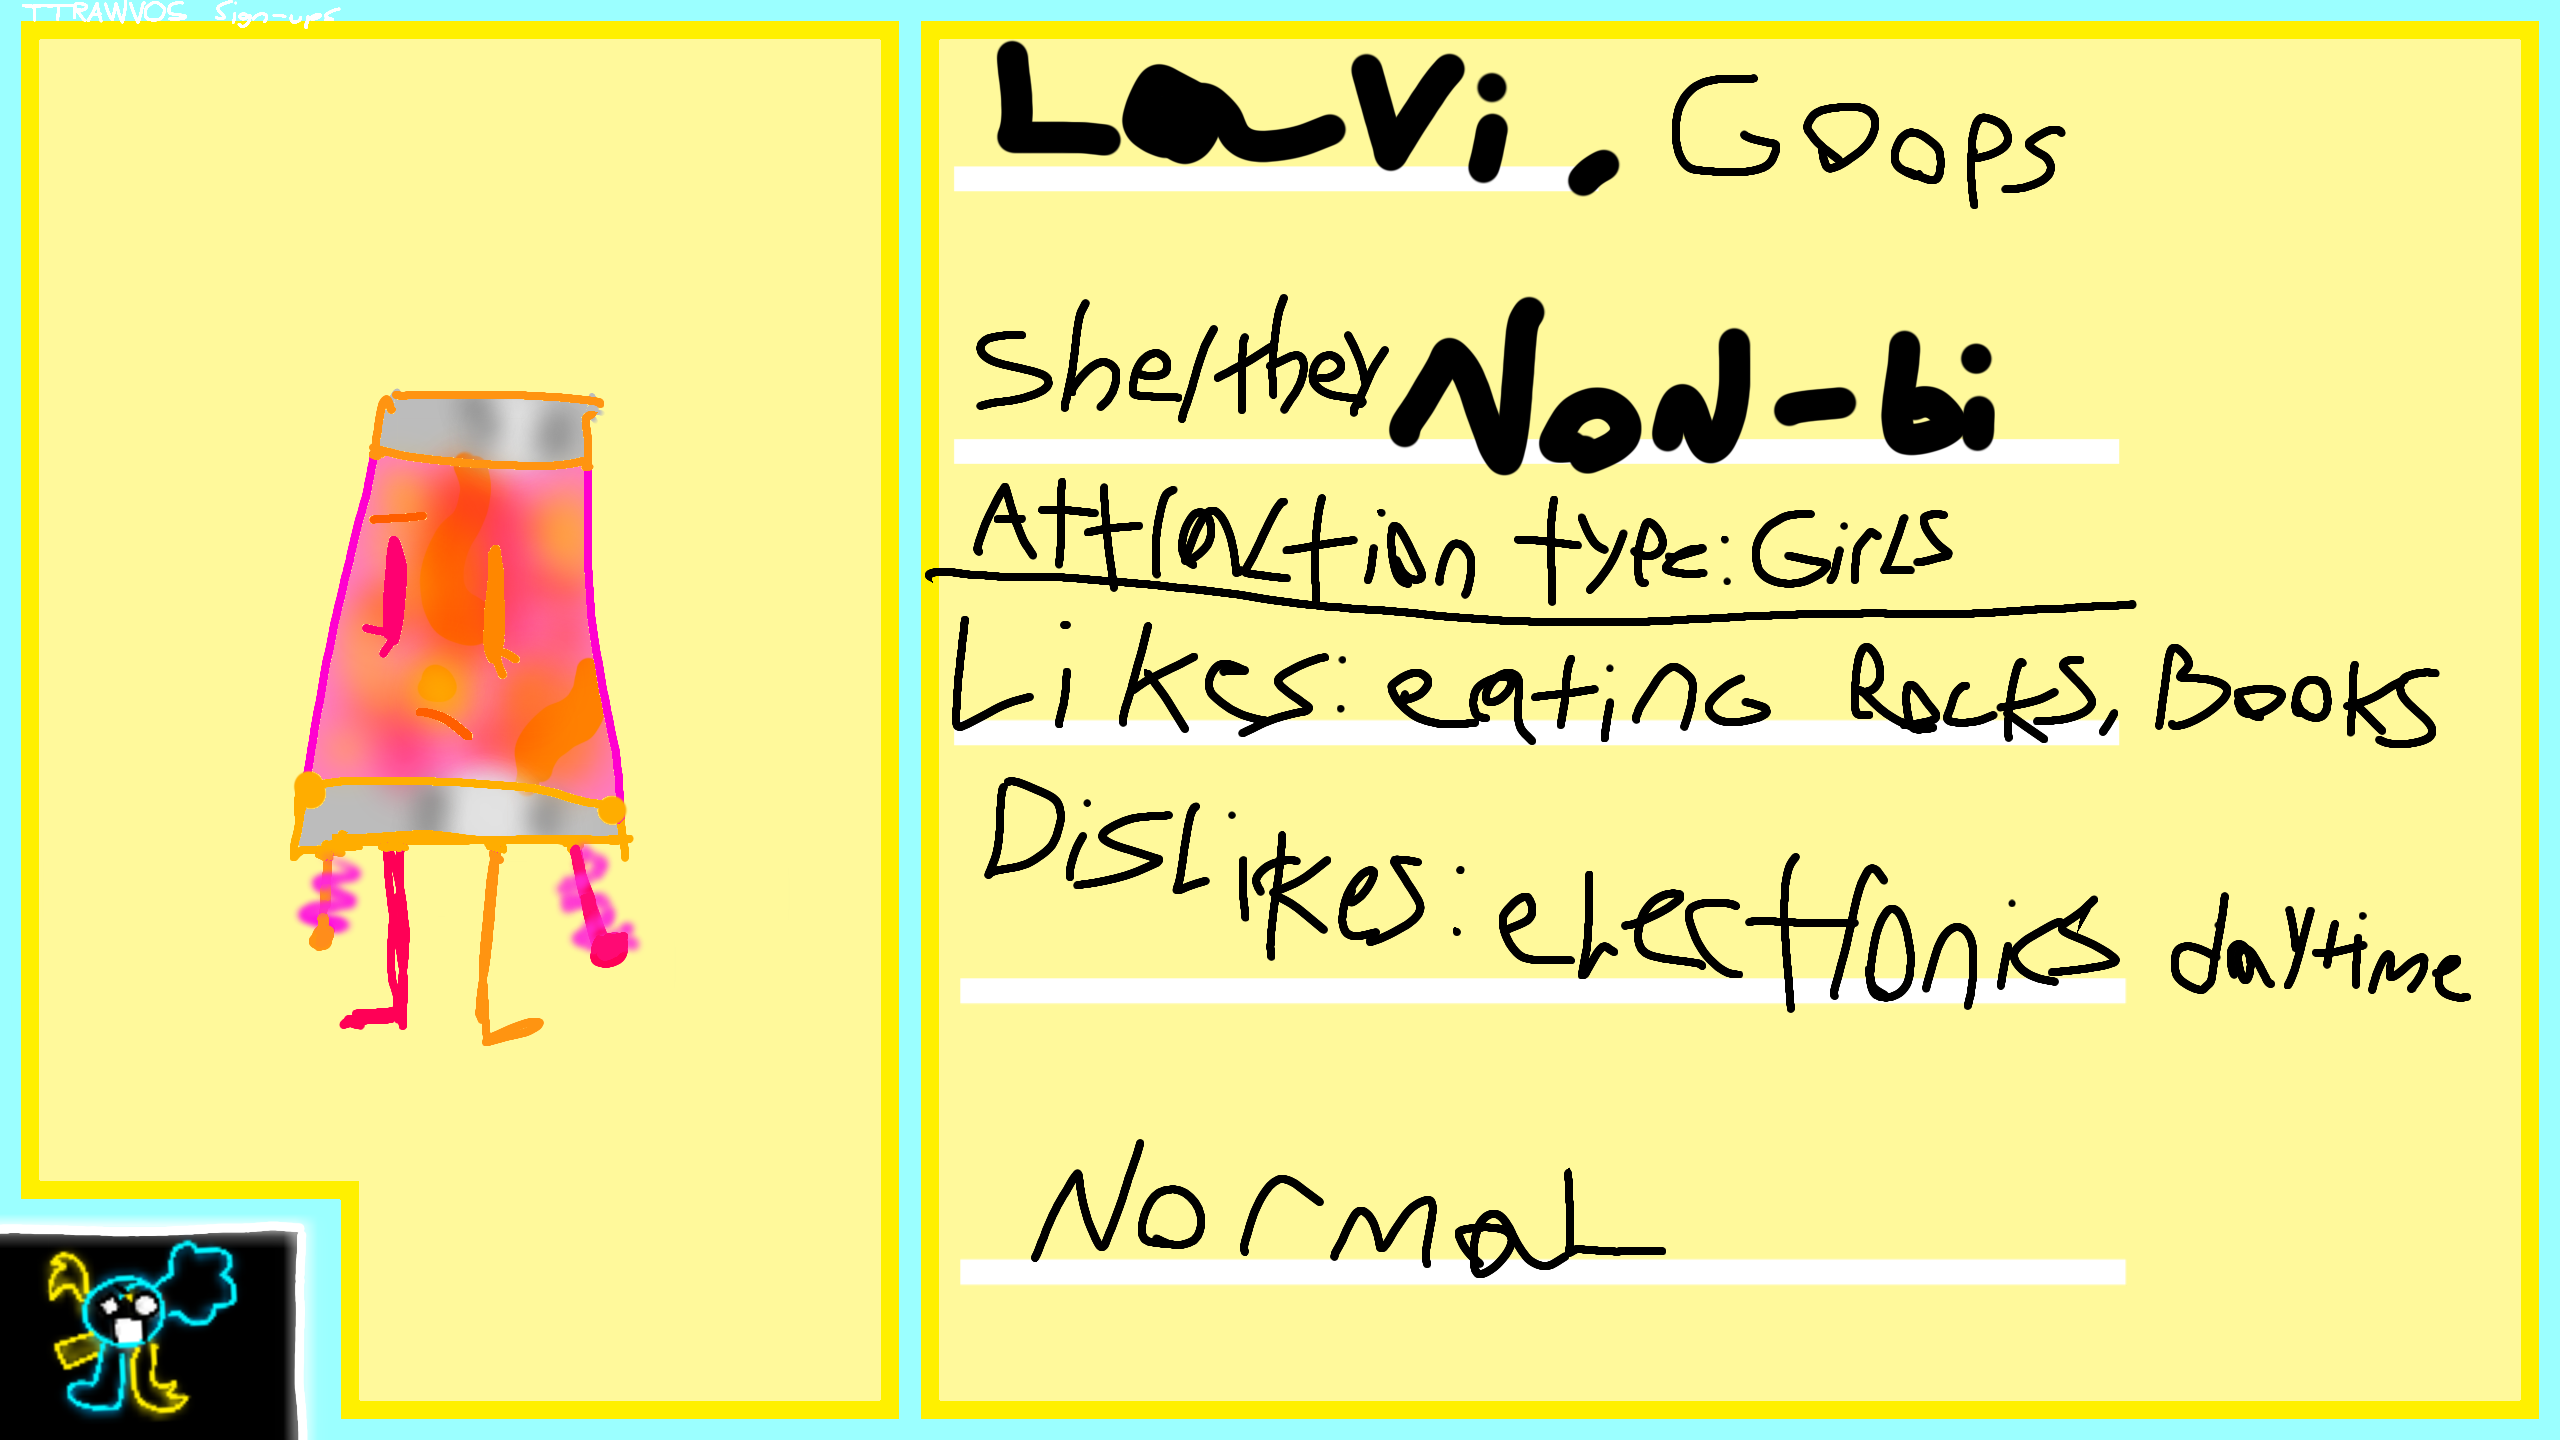 TTRAWVOS Sign-ups
Lavi. Goops
She/they Non-bi
Attraction type: Girls
Likes: eating Rocks, Books
Dislikes: electronics daytime
Normal